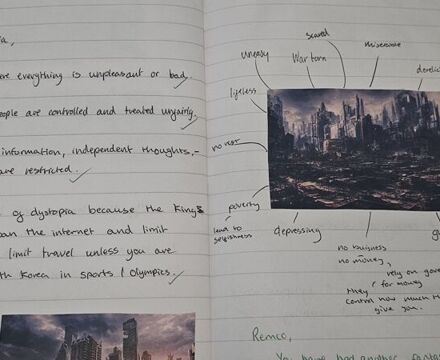 ia,
ere everything is unpleasant or bad.
eople are controlled and treated unfairly.
information, independent thoughts,
are restricted.
of dystopia because the Kings
ban the internet and limit
limit travel unless you are
th Korea in sports / Olympics.
scared
uneasy
War torn
miserable
derelic
lifeless
no rest
poverty
lead to
selfishness
depressing
no business
no money,
rely on gove
they for money
control how much th
give you.
Remco,
You have had another fanta